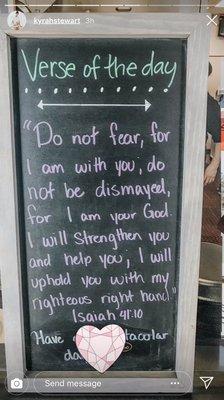 kyrahstewart 3h
Verse of the day
"Do not fear, for
I am with you, do
not be dismayed,
for I am your God.
I will strengthen you
and help you, I will
uphold you with my
righteous right hand."
Isaiah 41:10
Have
Send a message